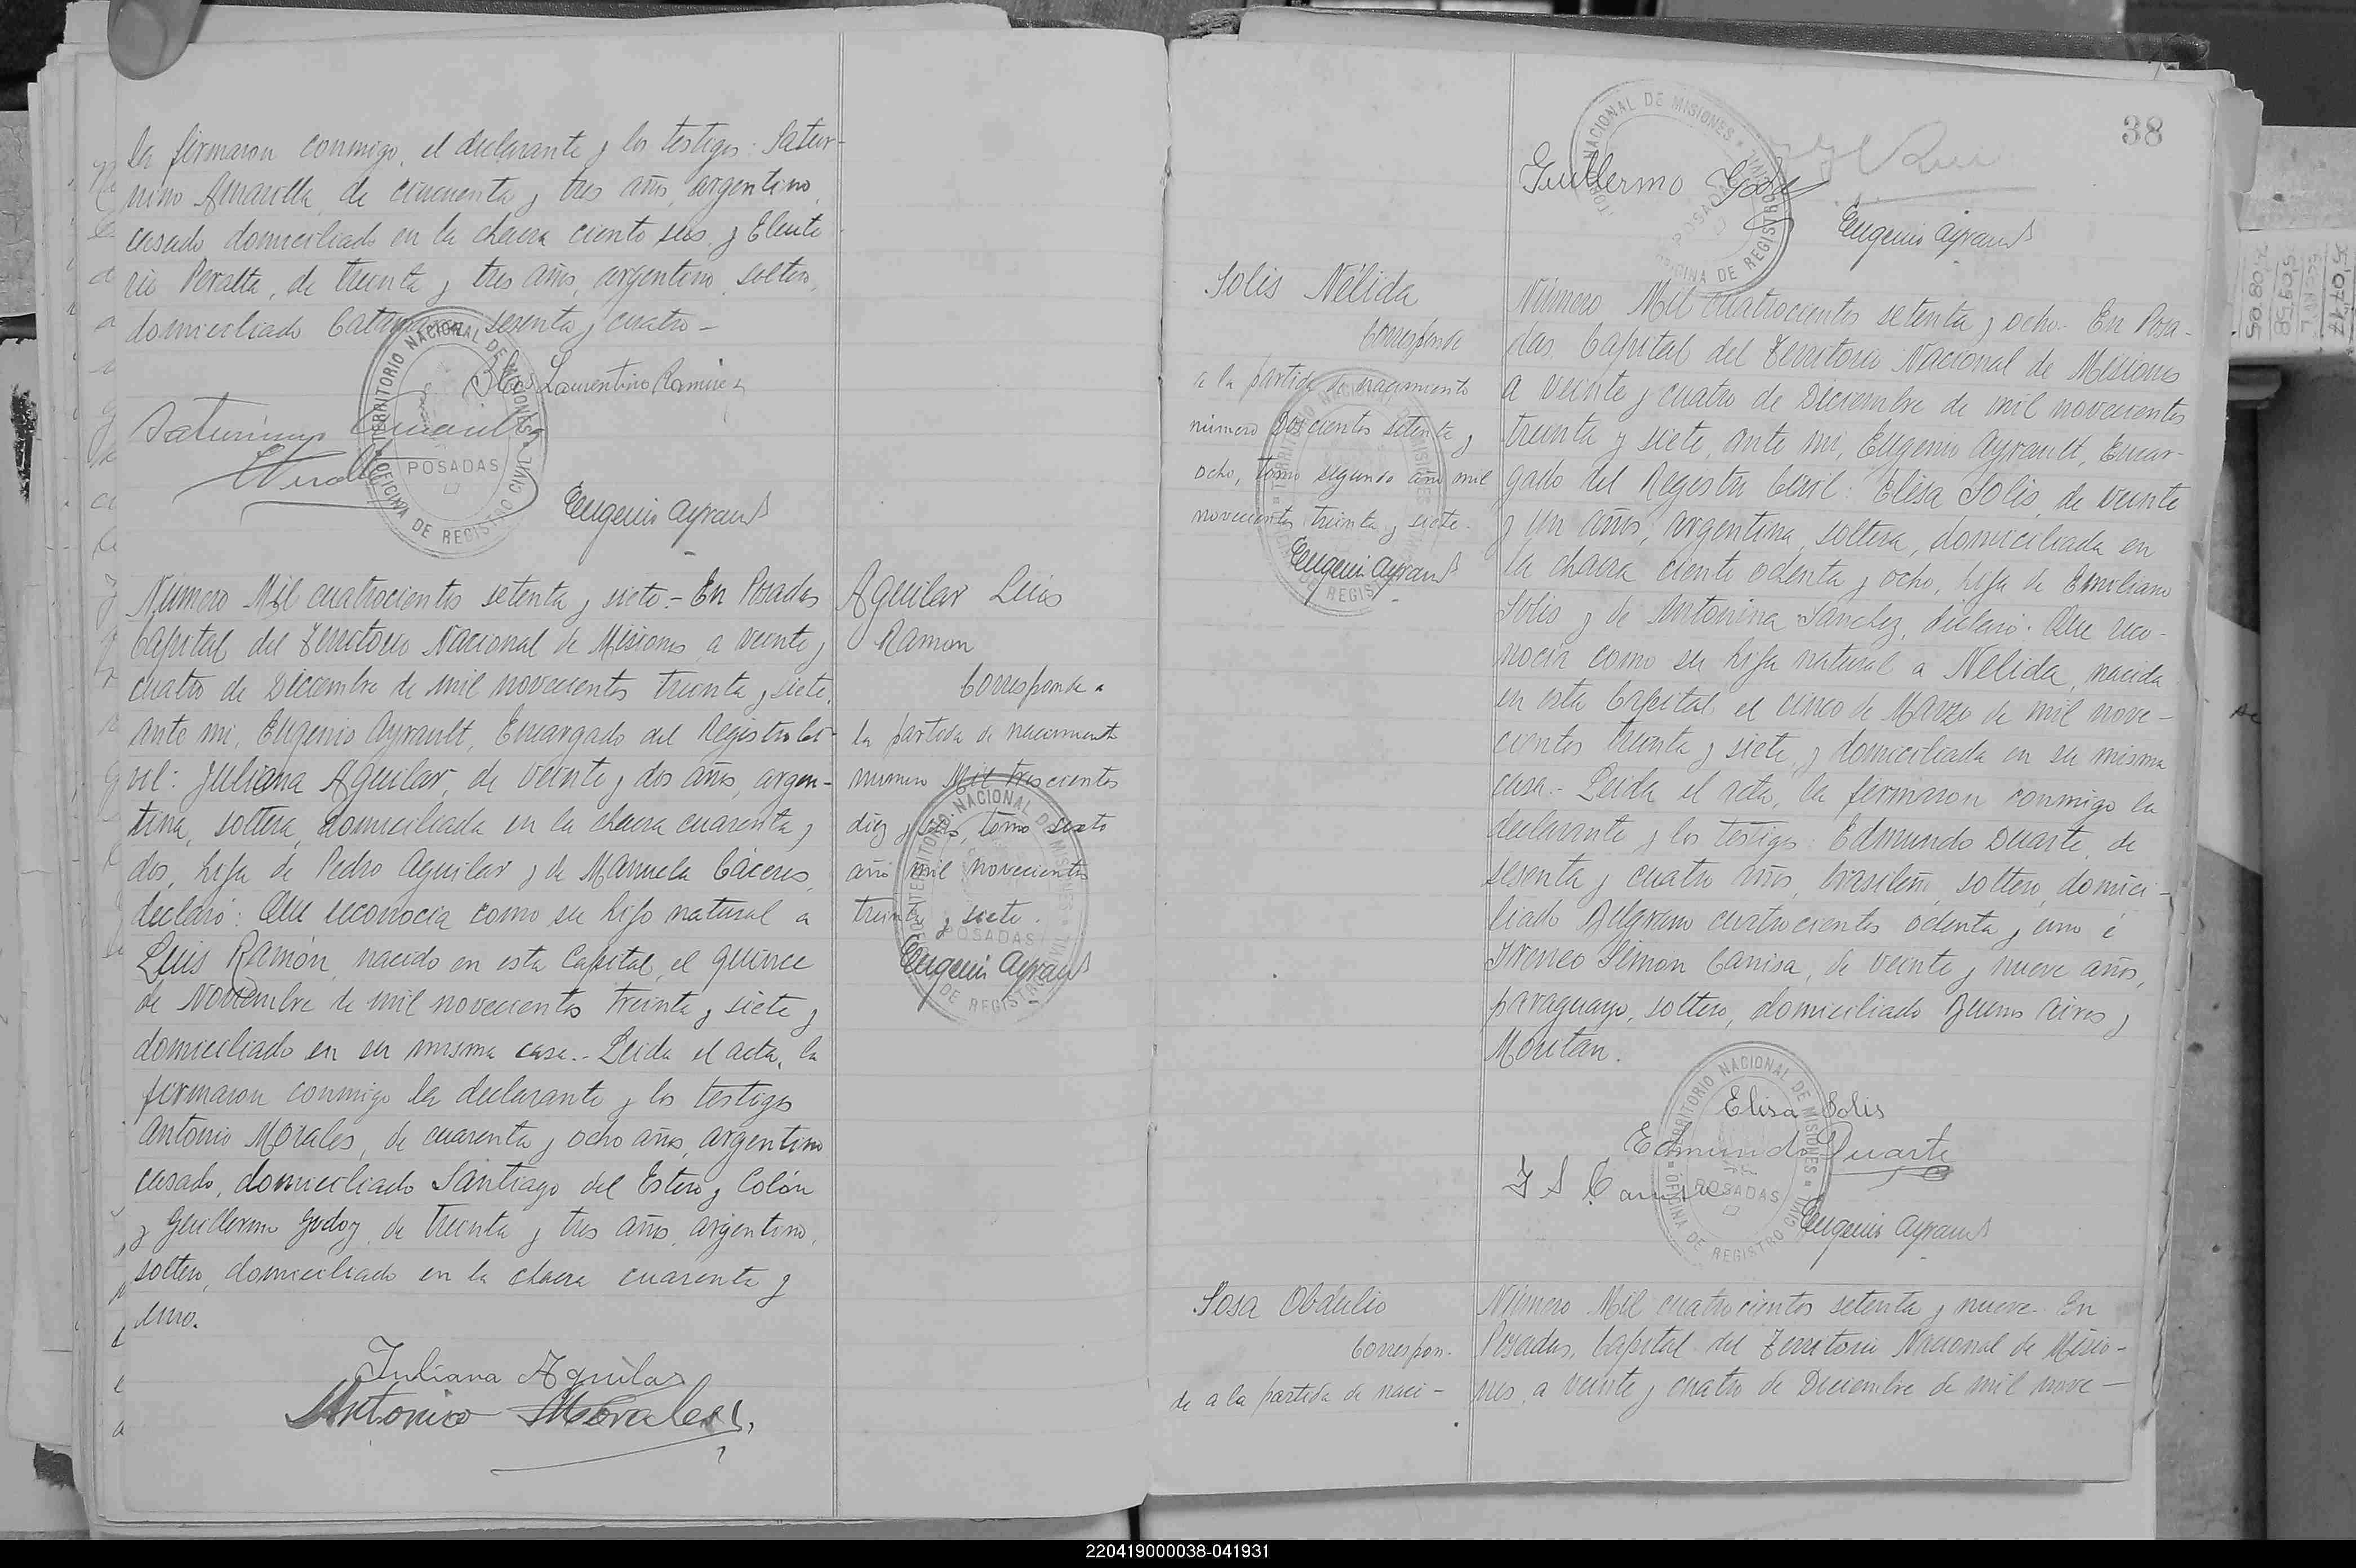 la firmaron conmigo, el declarante y los testigos: Satur-
nino Amarilla, de cincuenta y tres años, argentino,
casado domiciliado en la chacra ciento seis y Eleute
rio Peralta, de treinta y tres años, argentino, soltero,
domiciliado Catamarca sesenta y cuatro -
Blas Laurentino Ramirez
Saturnino Amarilla
TERRITORIO NACIONAL DE MISIONES
POSADAS
OFICINA DE REGISTRO CIVIL
Eugenio Ayrault
Número Mil cuatrocientos setenta y siete.- En Posadas
Capital del Territorio Nacional de Misiones a veinte y
cuatro de Diciembre de mil novecientos treinta y siete,
ante mi, Eugenio Ayrault, Encargado del Registro Ci-
vil: Juliana Aguilar, de veinte y dos años, argen-
tina, soltera, domiciliada en la chacra cuarenta y
dos, hija de Pedro Aguilar y de Manuela Cáceres,
declaró: Que reconocia como su hijo natural a
Luis Ramón, nacido en esta Capital, el quince
de Noviembre de mil novecientos treinta y siete y
domiciliado en su misma casa.- Leida el acta, la
firmaron conmigo la declarante y los testigos
Antonio Morales, de cuarenta y ocho años, argentino
casado, domiciliado Santiago del Estero y Colón
y Guillermo Godoy, de treinta y tres años, argentino,
soltero, domiciliado en la chacra cuarenta y
uno.
Juliana Aguilar
Antonio Morales
Aguilar Luis
Ramon
Corresponde a
la partida de nacimiento
numero Mil trescientos
diez y seis, tomo sexto
año mil novecientos
treinta y siete.
Eugenio Ayrault
TERRITORIO NACIONAL DE MISIONES
POSADAS
OFICINA DE REGISTRO CIVIL
38
Guillermo Godoy
Eugenio Ayrault
TERRITORIO NACIONAL DE MISIONES
POSADAS
OFICINA DE REGISTRO CIVIL
Solis Nélida
Corresponde
a la partida de nacimiento
número Doscientos setenta y
ocho, tomo segundo año mil
novecientos treinta y siete.
Eugenio Ayrault
Número Mil cuatrocientos setenta y ocho.- En Posa-
das, Capital del Territorio Nacional de Misiones
a veinte y cuatro de Diciembre de mil novecientos
treinta y siete, ante mi, Eugenio Ayrault, Encar-
gado del Registro Civil: Elisa Solis, de veinte
y un años, argentina, soltera, domiciliada en
la chacra ciento ochenta y ocho, hija de Emiliano
Solis y de Antonina Sanchez, declaró: Que reco-
nocia como su hija natural a Nelida, nacida
en esta Capital, el cinco de Marzo de mil nove-
cientos treinta y siete, y domiciliada en su misma
casa.- Leida el acta, la firmaron conmigo la
declarante y los testigos: Edmundo Duarte, de
sesenta y cuatro años, brasileño, soltero, domici-
liado Belgrano cuatrocientos ochenta y uno é
Ireneo Simon Canisa, de veinte y nueve años,
paraguayo, soltero, domiciliado Buenos Aires y
Moritan.
Elisa Solis
Edmundo Duarte
I S Canisa
Eugenio Ayrault
TERRITORIO NACIONAL DE MISIONES
POSADAS
OFICINA DE REGISTRO CIVIL
Sosa Obdulio
Correspon-
de a la partida de naci-
Número Mil cuatrocientos setenta y nueve. En
Posadas, Capital del Territorio Nacional de Misio-
nes, a veinte y cuatro de Diciembre de mil nove-
220419000038-041931